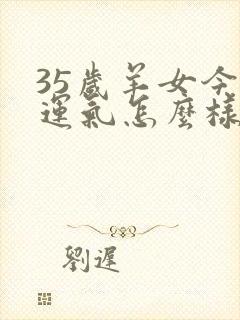 35歲羊女今
運氣怎麼樣
劉遲